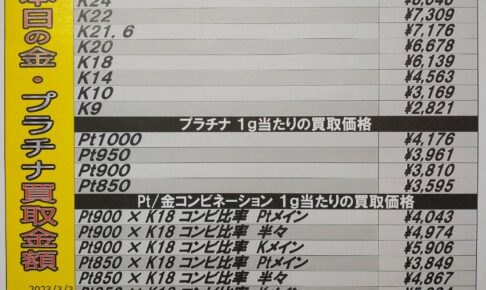 本日の金・プラチナ買取金額
K24
K22 ¥7,309
K21.6 ¥7,176
K20 ¥6,678
K18 ¥6,139
K14 ¥4,563
K10 ¥3,169
K9 ¥2,821
プラチナ 1g当たりの買取価格
Pt1000 ¥4,176
Pt950 ¥3,961
Pt900 ¥3,810
Pt850 ¥3,595
Pt/金コンビネーション 1g当たりの買取価格
Pt900 × K18 コンビ比率 Ptメイン ¥4,043
Pt900 × K18 コンビ比率 半々 ¥4,974
Pt900 × K18 コンビ比率 Kメイン ¥5,906
Pt850 × K18 コンビ比率 Ptメイン ¥3,849
Pt850 × K18 コンビ比率 半々 ¥4,867